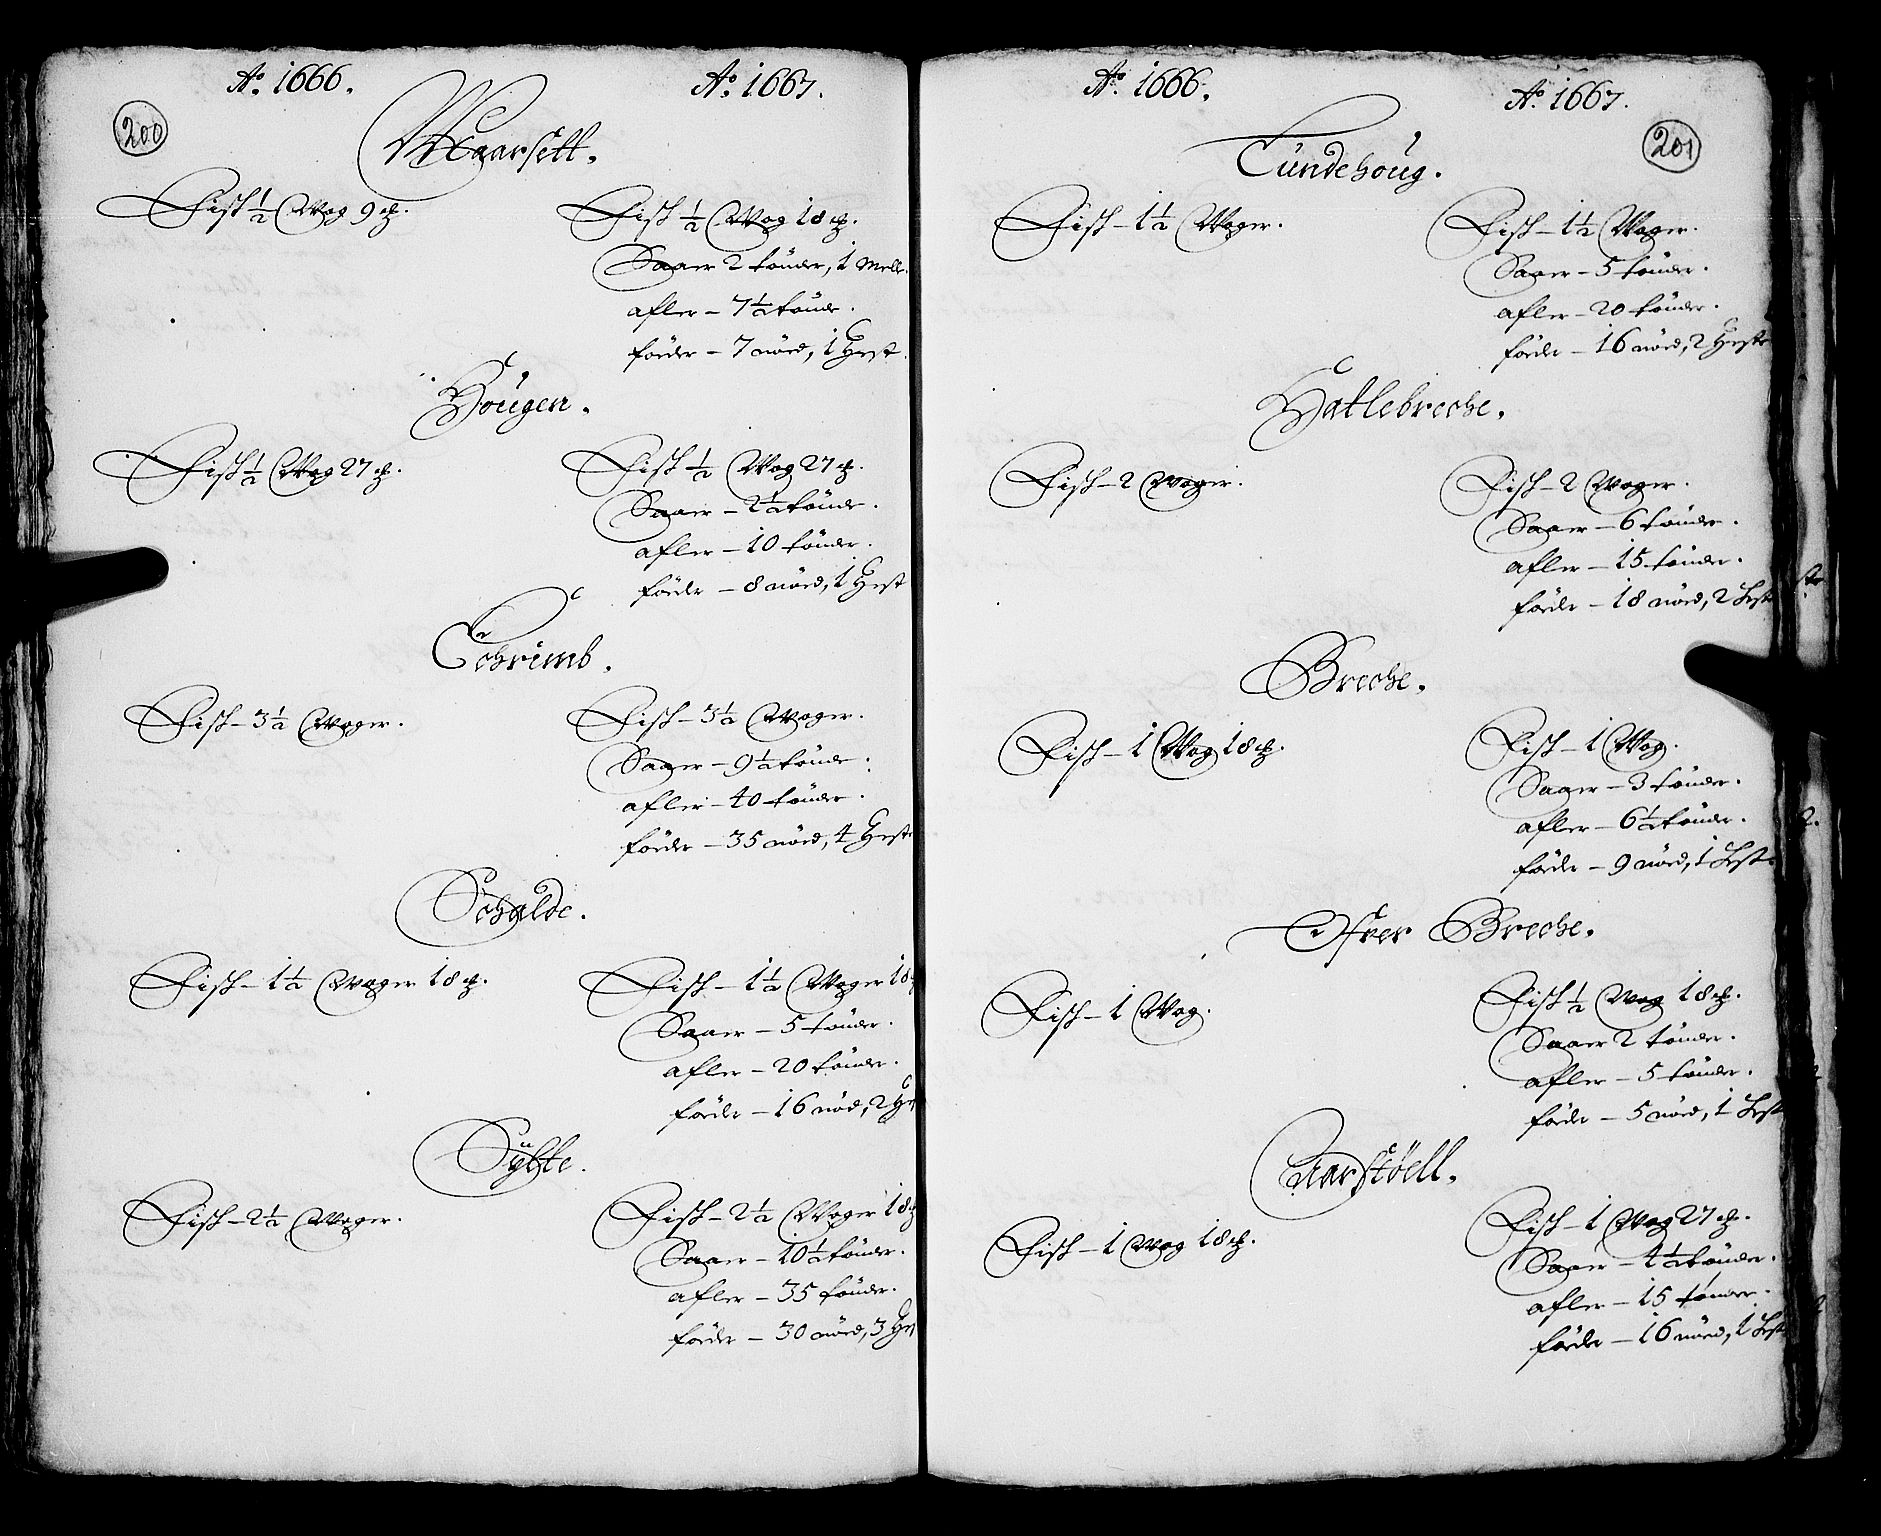 Ao. 1666. Ao. 1667.
200
Maarsett.
Fisk ½ Wog 9 ℔.
Fisk ½ Wog 18 ℔.
Saaer 2 tönder, 1 Mele.
afler – 7½ tönde.
föeder – 7 nöed, 1 Hest.
Hougen.
Fisk ½ Wog 27 ℔.
Fisk ½ Wog 27 ℔.
Saaer – 2½ tönde.
afler – 10 tönder.
föede – 8 nöed, 1 Hest
Schrimb.
Fisk – 3½ Woger.
Fisk – 3½ Woger.
Saaer – 9½ tönde.
afler – 40 tönder.
föeder – 35 nöed, 4 Heste
Schalde.
Fisk – 1½ Woger 18 ℔.
Fisk – 1½ Woger 18
Saaer – 5 tönder.
afler – 20 tönder.
föede – 16 nöd, 2 He
Sÿlte.
Fisk – 2½ Woger.
Fisk – 2½ Woger 18 ℔
Saaer – 10½ tönder.
afler – 35 tönder.
föede – 30 nöed, 3 Hes
Ao. 1666. Ao. 1667.
201
Tundehoug.
Fisk – 1½ Woger.
Fisk – 1½ Woger.
Saaer – 5 tönder.
afler – 20 tönder.
föede – 16 nöed, 2 Heste
Hatlebreche.
Fisk – 2 Woger.
Fisk – 2 Woger.
Saaer – 6 tönder.
afler – 15 tönder.
föede – 18 nöed, 2 Hest
Breche.
Fisk – 1 Wog 18 ℔.
Fisk – 1 Wog.
Saaer – 3 tönder.
afler – 6½ tönder.
föede – 9 nöed, 1 Hest
Ofver Breche.
Fisk – 1 Wog.
Fisk ½ Wog 18 ℔.
Saaer 2 tönder.
afler – 5 tönder.
föede – 5 nöed, 1 Hest
Aarstöell.
Fisk – 1 Wog 18 ℔.
Fisk – 1 Wog 27 ℔.
Saaer – 4½ tönder.
afler – 15 tönder.
föede – 16 nöed, 1 Hest